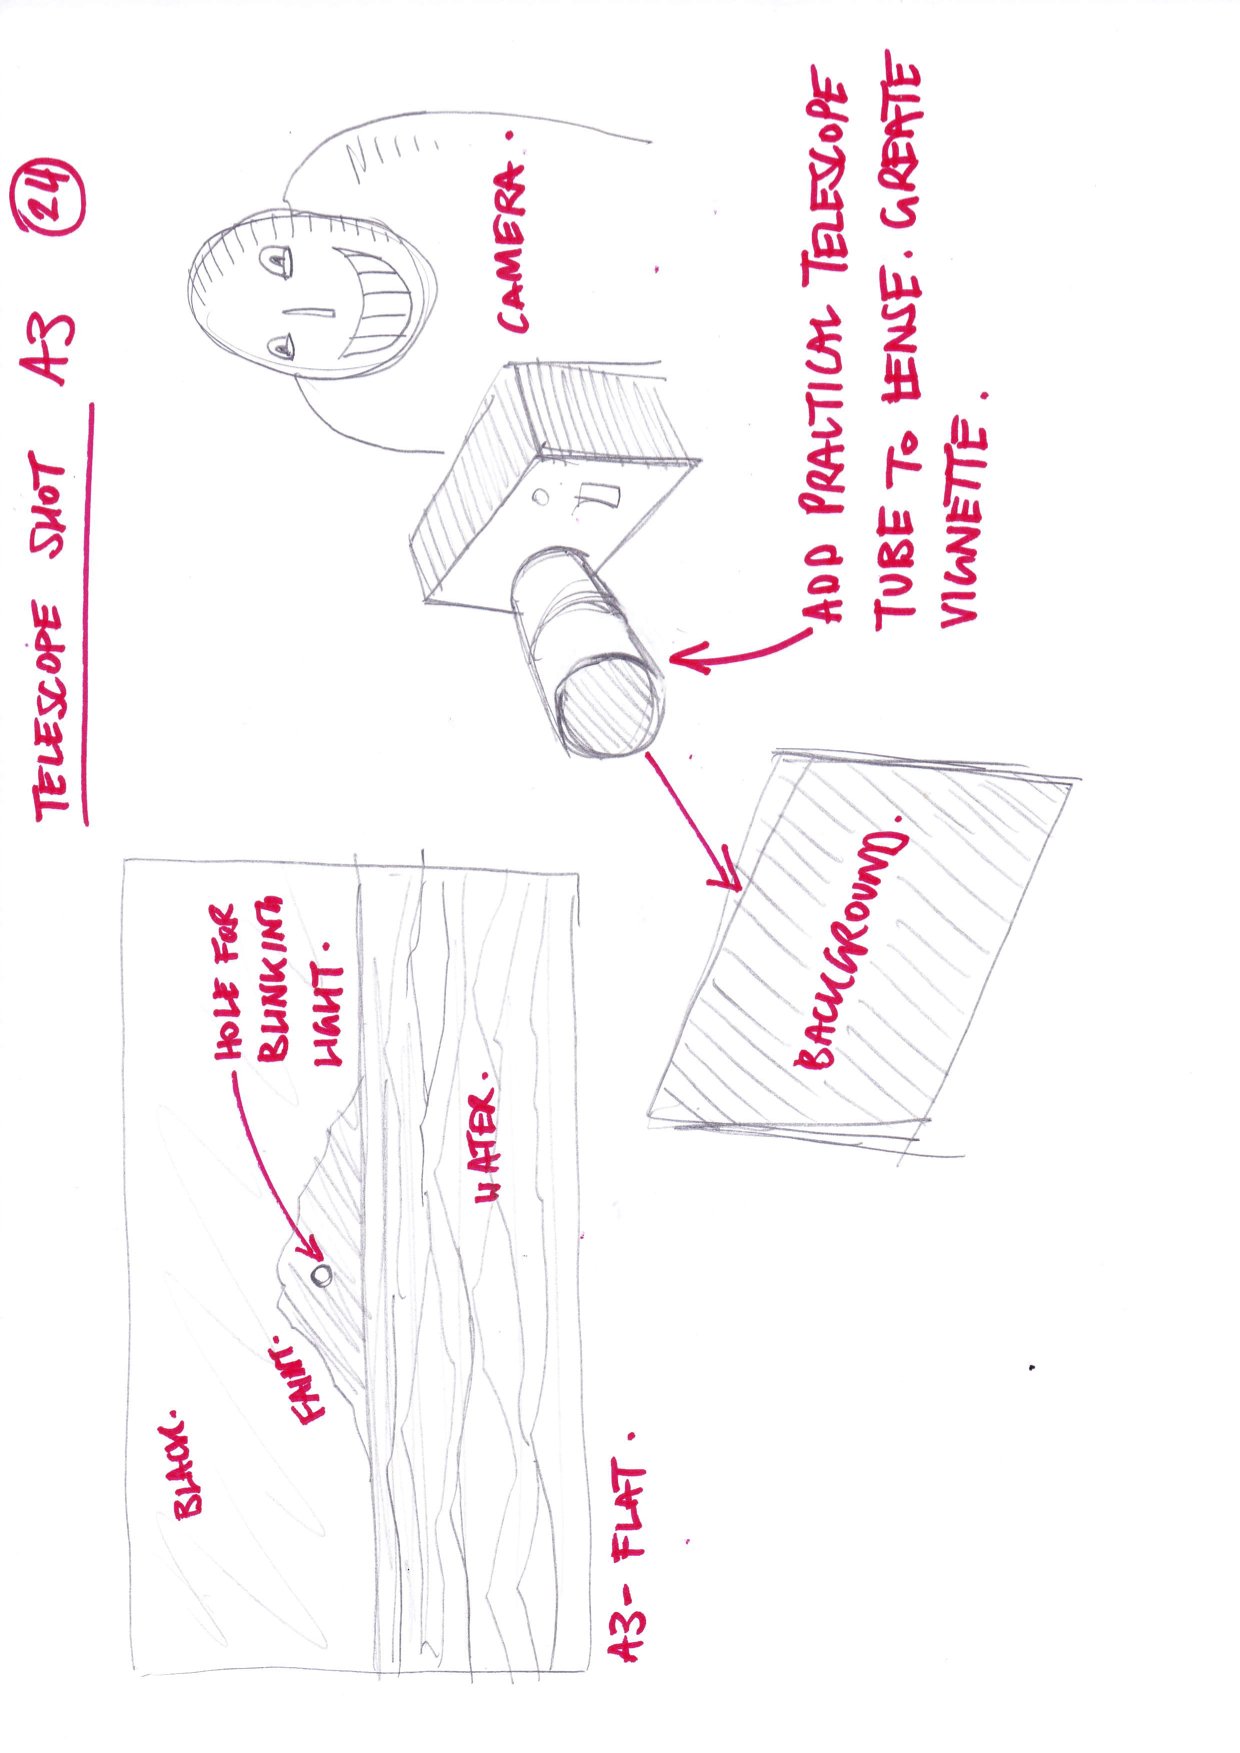 TELESCOPE SHOT A3 24
BLACK.
FAINT.
HOLE FOR
BLINKING
LIGHT.
WATER.
A3-FLAT.
CAMERA.
BACKGROUND.
ADD PRACTICAL TELESCOPE
TUBE TO LENSE. CREATE
VIGNETTE.